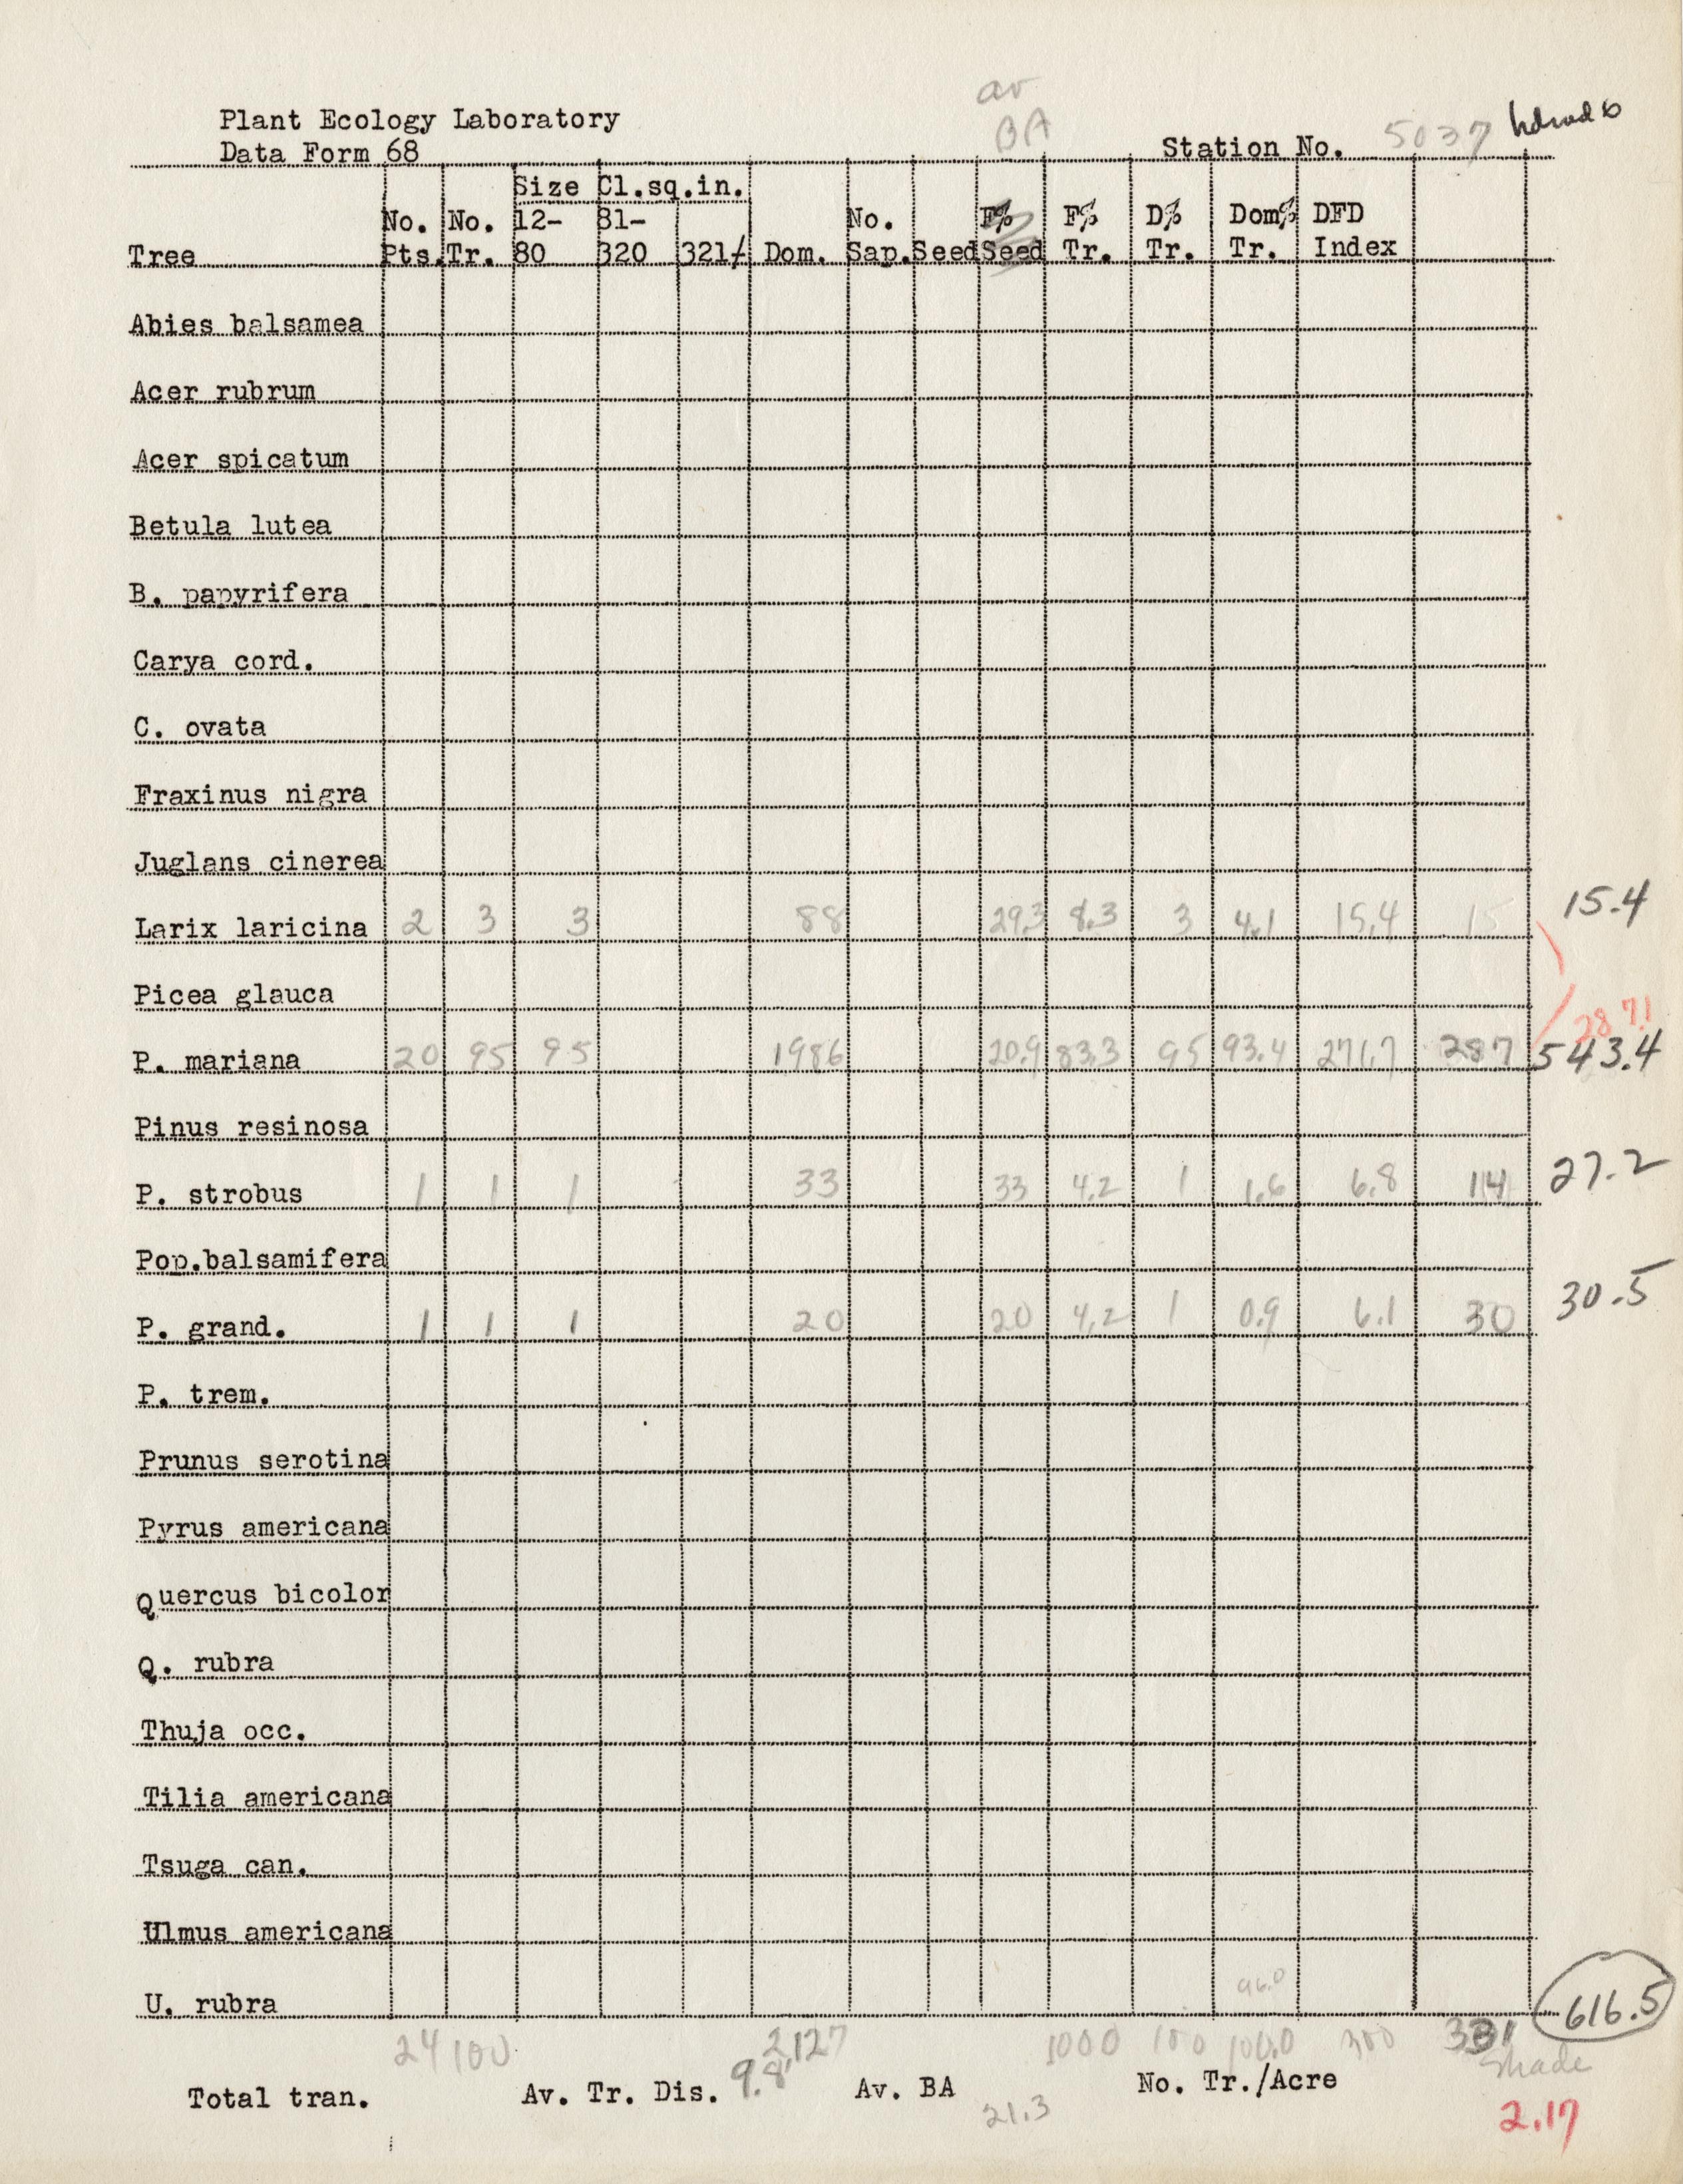 av
Plant Ecology Laboratory
BA
Data Form 68 Station No. 5037
Size Cl.sq.in.
No. No. 12- 81- No. F% F% D% Dom% DFD
Tree Pts. Tr. 80 320 321/ Dom. Sap. Seed Seed Tr. Tr. Tr. Index
Abies balsamea
Acer rubrum
Acer spicatum
Betula lutea
B. papyrifera
Carya cord.
C. ovata
Fraxinus nigra
Juglans cinerea
Larix laricina 2 3 3 88 29.3 8.3 3 4.1 15.4 15 15.4
Picea glauca
287.1
P. mariana 20 95 95 1986 20.9 83.3 95 93.4 271.7 287 543.4
Pinus resinosa
P. strobus 1 1 1 33 33 4.2 1 1.6 6.8 14 27.2
Pop.balsamifera
P. grand. 1 1 1 20 20 4.2 1 0.9 6.1 30 30.5
P. trem.
Prunus serotina
Pyrus americana
Quercus bicolor
Q. rubra
Thuja occ.
Tilia americana
Tsuga can.
Ulmus americana
96.0
U. rubra 616.5
24 100 2127 1000 100 100.0 300 331
shade
Total tran. Av. Tr. Dis. 9.8' Av. BA No. Tr./Acre
21.3 2.17